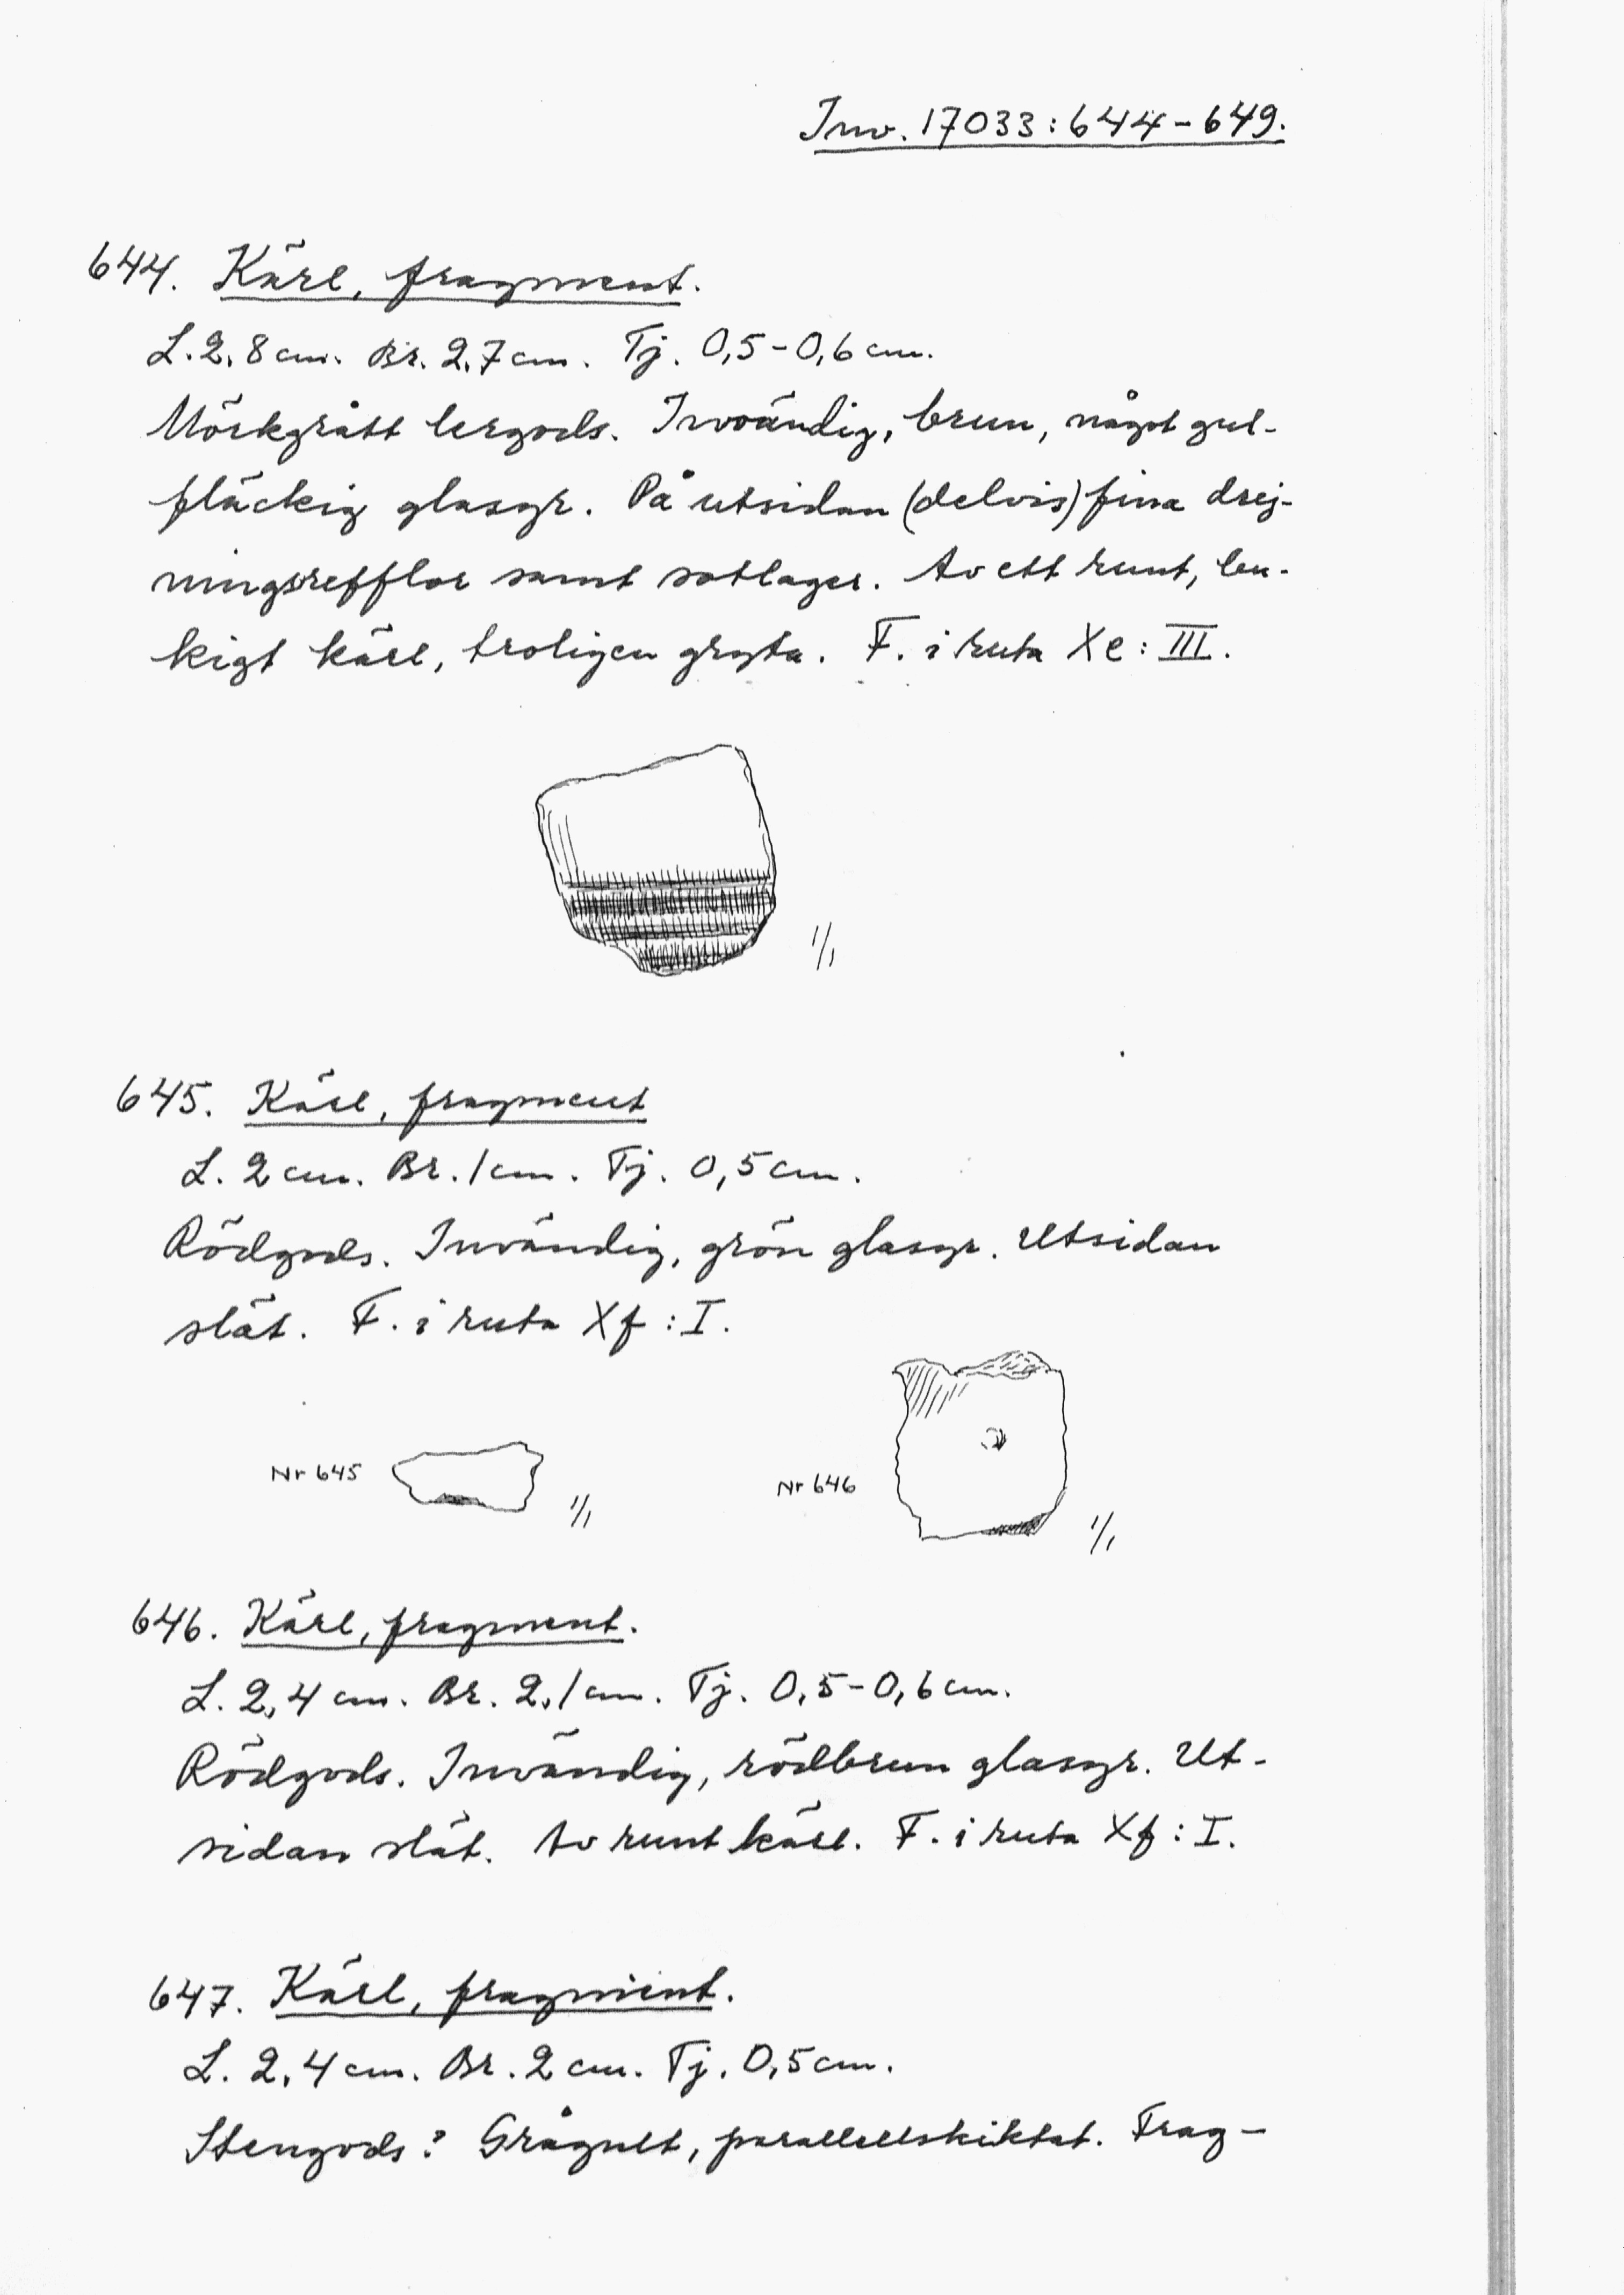 Inv. 17033:644-649.
644. Kärl, fragment.
L. 2,8 cm. Br. 2,7 cm. Tj. 0,5-0,6 cm.
Mörkgrått lergods. Invändig, brun, något gul-
fläckig glasyr. På utsidan (delvis) fina drej-
ningsrefflor samt sotlager. Av ett runt, bu-
kigt kärl, troligen gryta. F. i ruta Xe: III.
1/1
645. Kärl, fragment
L. 2 cm. Br. 1 cm. Tj. 0,5 cm.
Rödgods. Invändig, grön glasyr. Utsidan
slät. F. i ruta Xf: I.
Nr 645
1/1
Nr 646
1/1
646. Kärl, fragment.
L. 2,4 cm. Br. 2,1 cm. Tj. 0,5-0,6 cm.
Rödgods. Invändig, rödbrun glasyr. Ut-
sidan slät. Av runt kärl. F. i ruta Xf: I.
647. Kärl, fragment.
L. 2,4 cm. Br. 2 cm. Tj. 0,5 cm.
Stengods? Grågult, parallellskiktat. Frag-